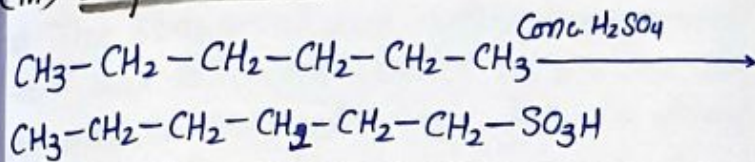 CH3-CH2-CH2-CH2-CH2-CH3 Conc. H2SO4
CH3-CH2-CH2-CH2-CH2-CH2-SO3H